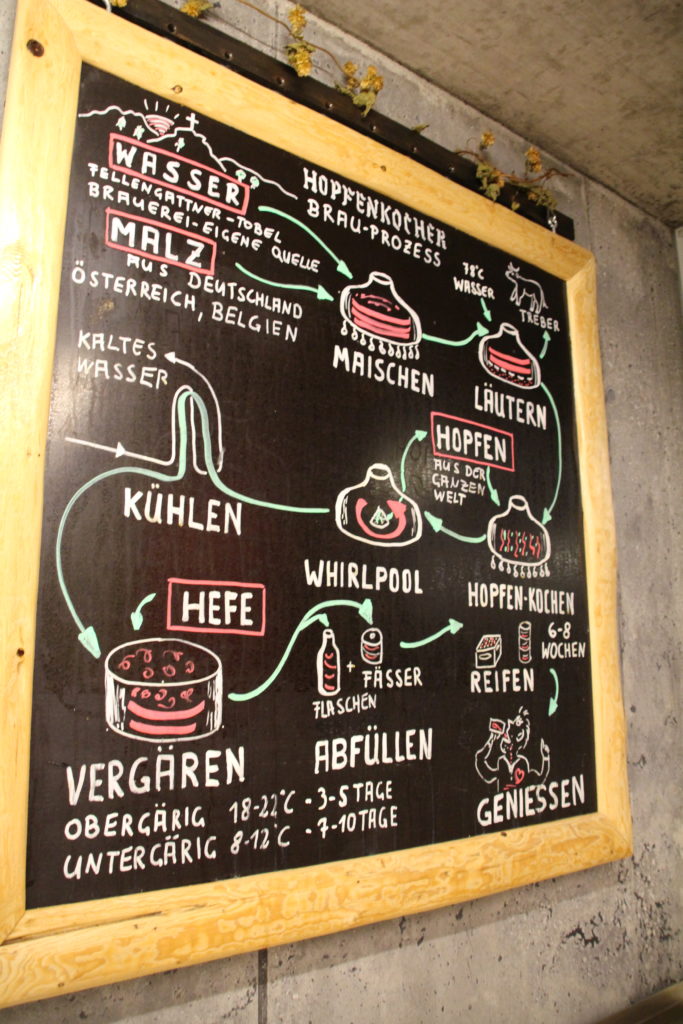 HOPFENKOCHER
BRAU-PROZESS
WASSER
FELLENGATTNER-TOBEL
BRAUEREI-EIGENE QUELLE
MALZ
AUS DEUTSCHLAND
ÖSTERREICH, BELGIEN
MAISCHEN
78°C
WASSER
TREBER
LÄUTERN
HOPFEN
AUS DER
GANZEN
WELT
HOPFEN-KOCHEN
WHIRLPOOL
KALTES
WASSER
KÜHLEN
HEFE
VERGÄREN
OBERGÄRIG 18-22°C - 3-5 TAGE
UNTERGÄRIG 8-12°C - 7-10 TAGE
+
FLASCHEN
FÄSSER
ABFÜLLEN
6-8
WOCHEN
REIFEN
GENIESSEN